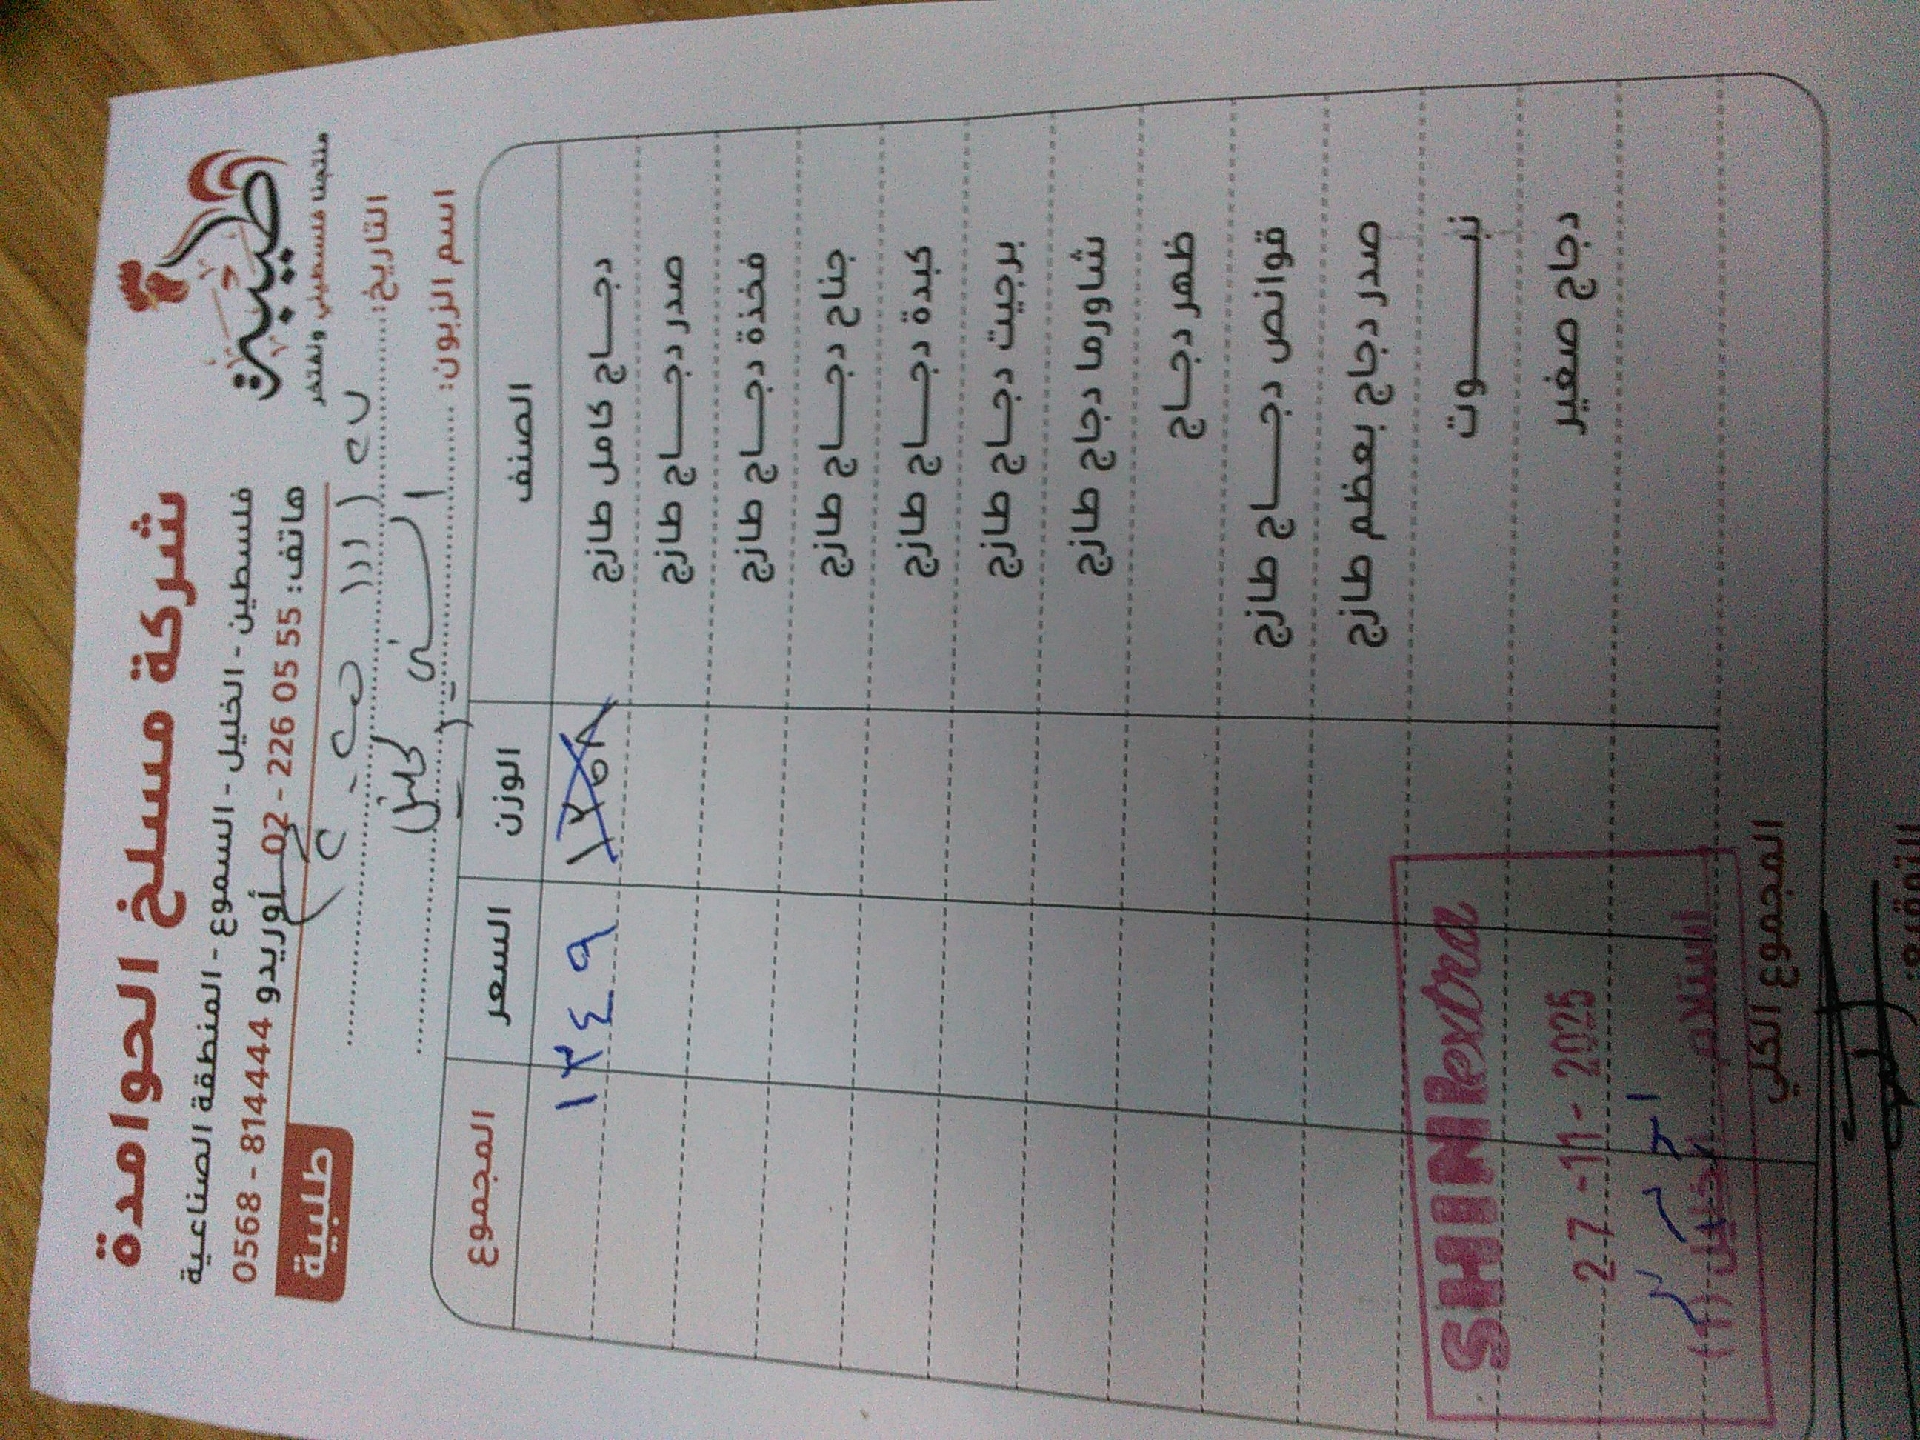 شركة مسلخ الحوامدة
فلسطين - الخليل - السموع - المنطقة الصناعية
هاتف: 55 05 226 - 02 أوريدو 814444 - 0568
طلبية
طيبة
منتجنا فلسطيني ونفتخر
التاريخ:
اسم الزبون:
الصنف الوزن السعر المجموع
دجاج كامل طازج ١٣٤٩
صدر دجاج طازج
فخذة دجاج طازج
جناح دجاج طازج
كبدة دجاج طازج
برجيت دجاج طازج
شاورما دجاج طازج
ظهر دجاج
قوانص دجاج طازج
صدر دجاج بعظم طازج
نبوت
دجاج صغير
SHINI extra
27-11-2025
استلام
المجموع الكلي
التوقيع: